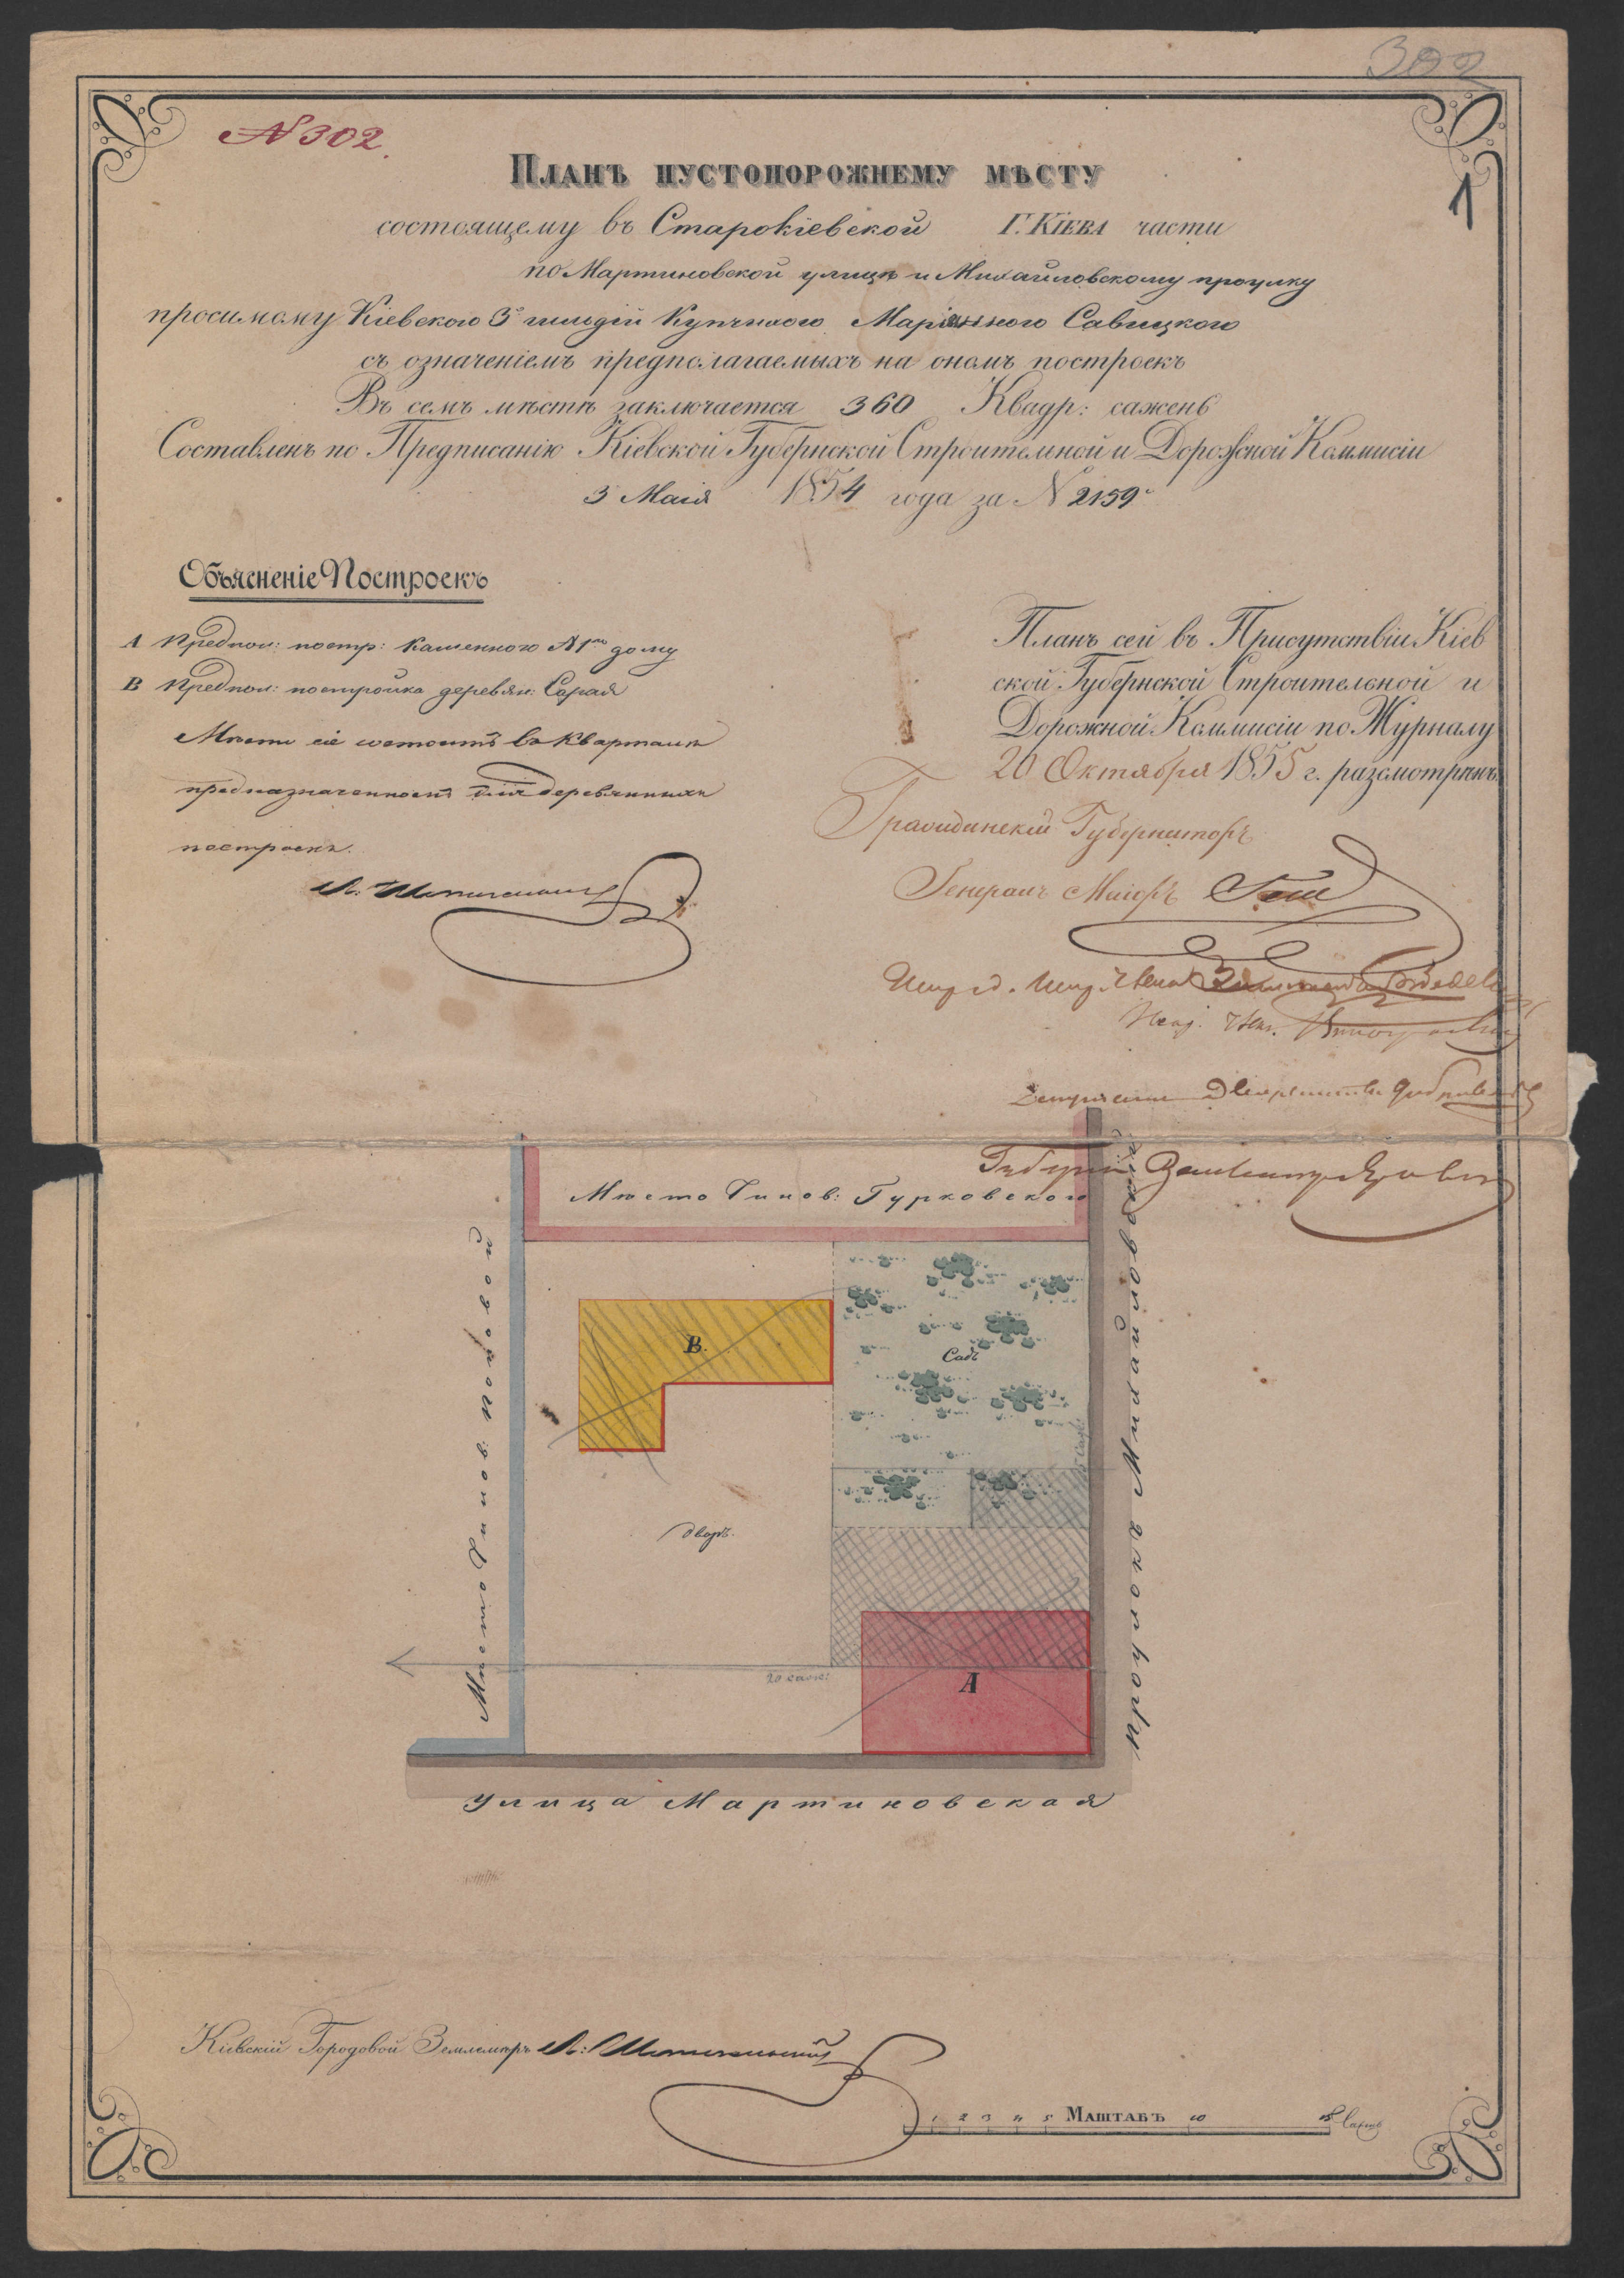 302
N 302.
1
Планъ пустопорожнему мѣсту
состоящему въ Старокіевской Г. Кіева части
по Мартиновской улицѣ и Михайловскому проулку
просимому Кіевского 3й гильдіи Купчихою Савицкого
съ означеніемъ предполагаемыхъ на ономъ построекъ
Въ семъ мѣстѣ заключается 360 Квадр: сажень
Составленъ по Предписанію Кіевской Губернской Строительной и Дорожной Коммисіи
3 Маія 1854 года за № 2159
Объясненіе Построекъ
А Предпол: постр: каменного дому
В Предпол: постройка деревян: Сарая
Мѣсто сіе состоитъ въ Кварталѣ
предназначенномъ для деревянныхъ
построекъ.
Планъ сей въ Присутствіи Кіев
ской Губернской Строительной и
Дорожной Коммисіи по Журналу
20 Октября 1855 г. разсмотрѣнъ
Гражданскій Губернаторъ
Генералъ Маіоръ
Мѣсто Чинов: Гурковского
Мѣсто Чинов: Поповой
Проулокъ Михайловскій
В.
Садъ
Дворъ.
20 саж:
А
Улица Мартиновская
Кіевскій Городовой Землемѣръ
1 2 3 4 5 Маштабъ 10 15 Сажень